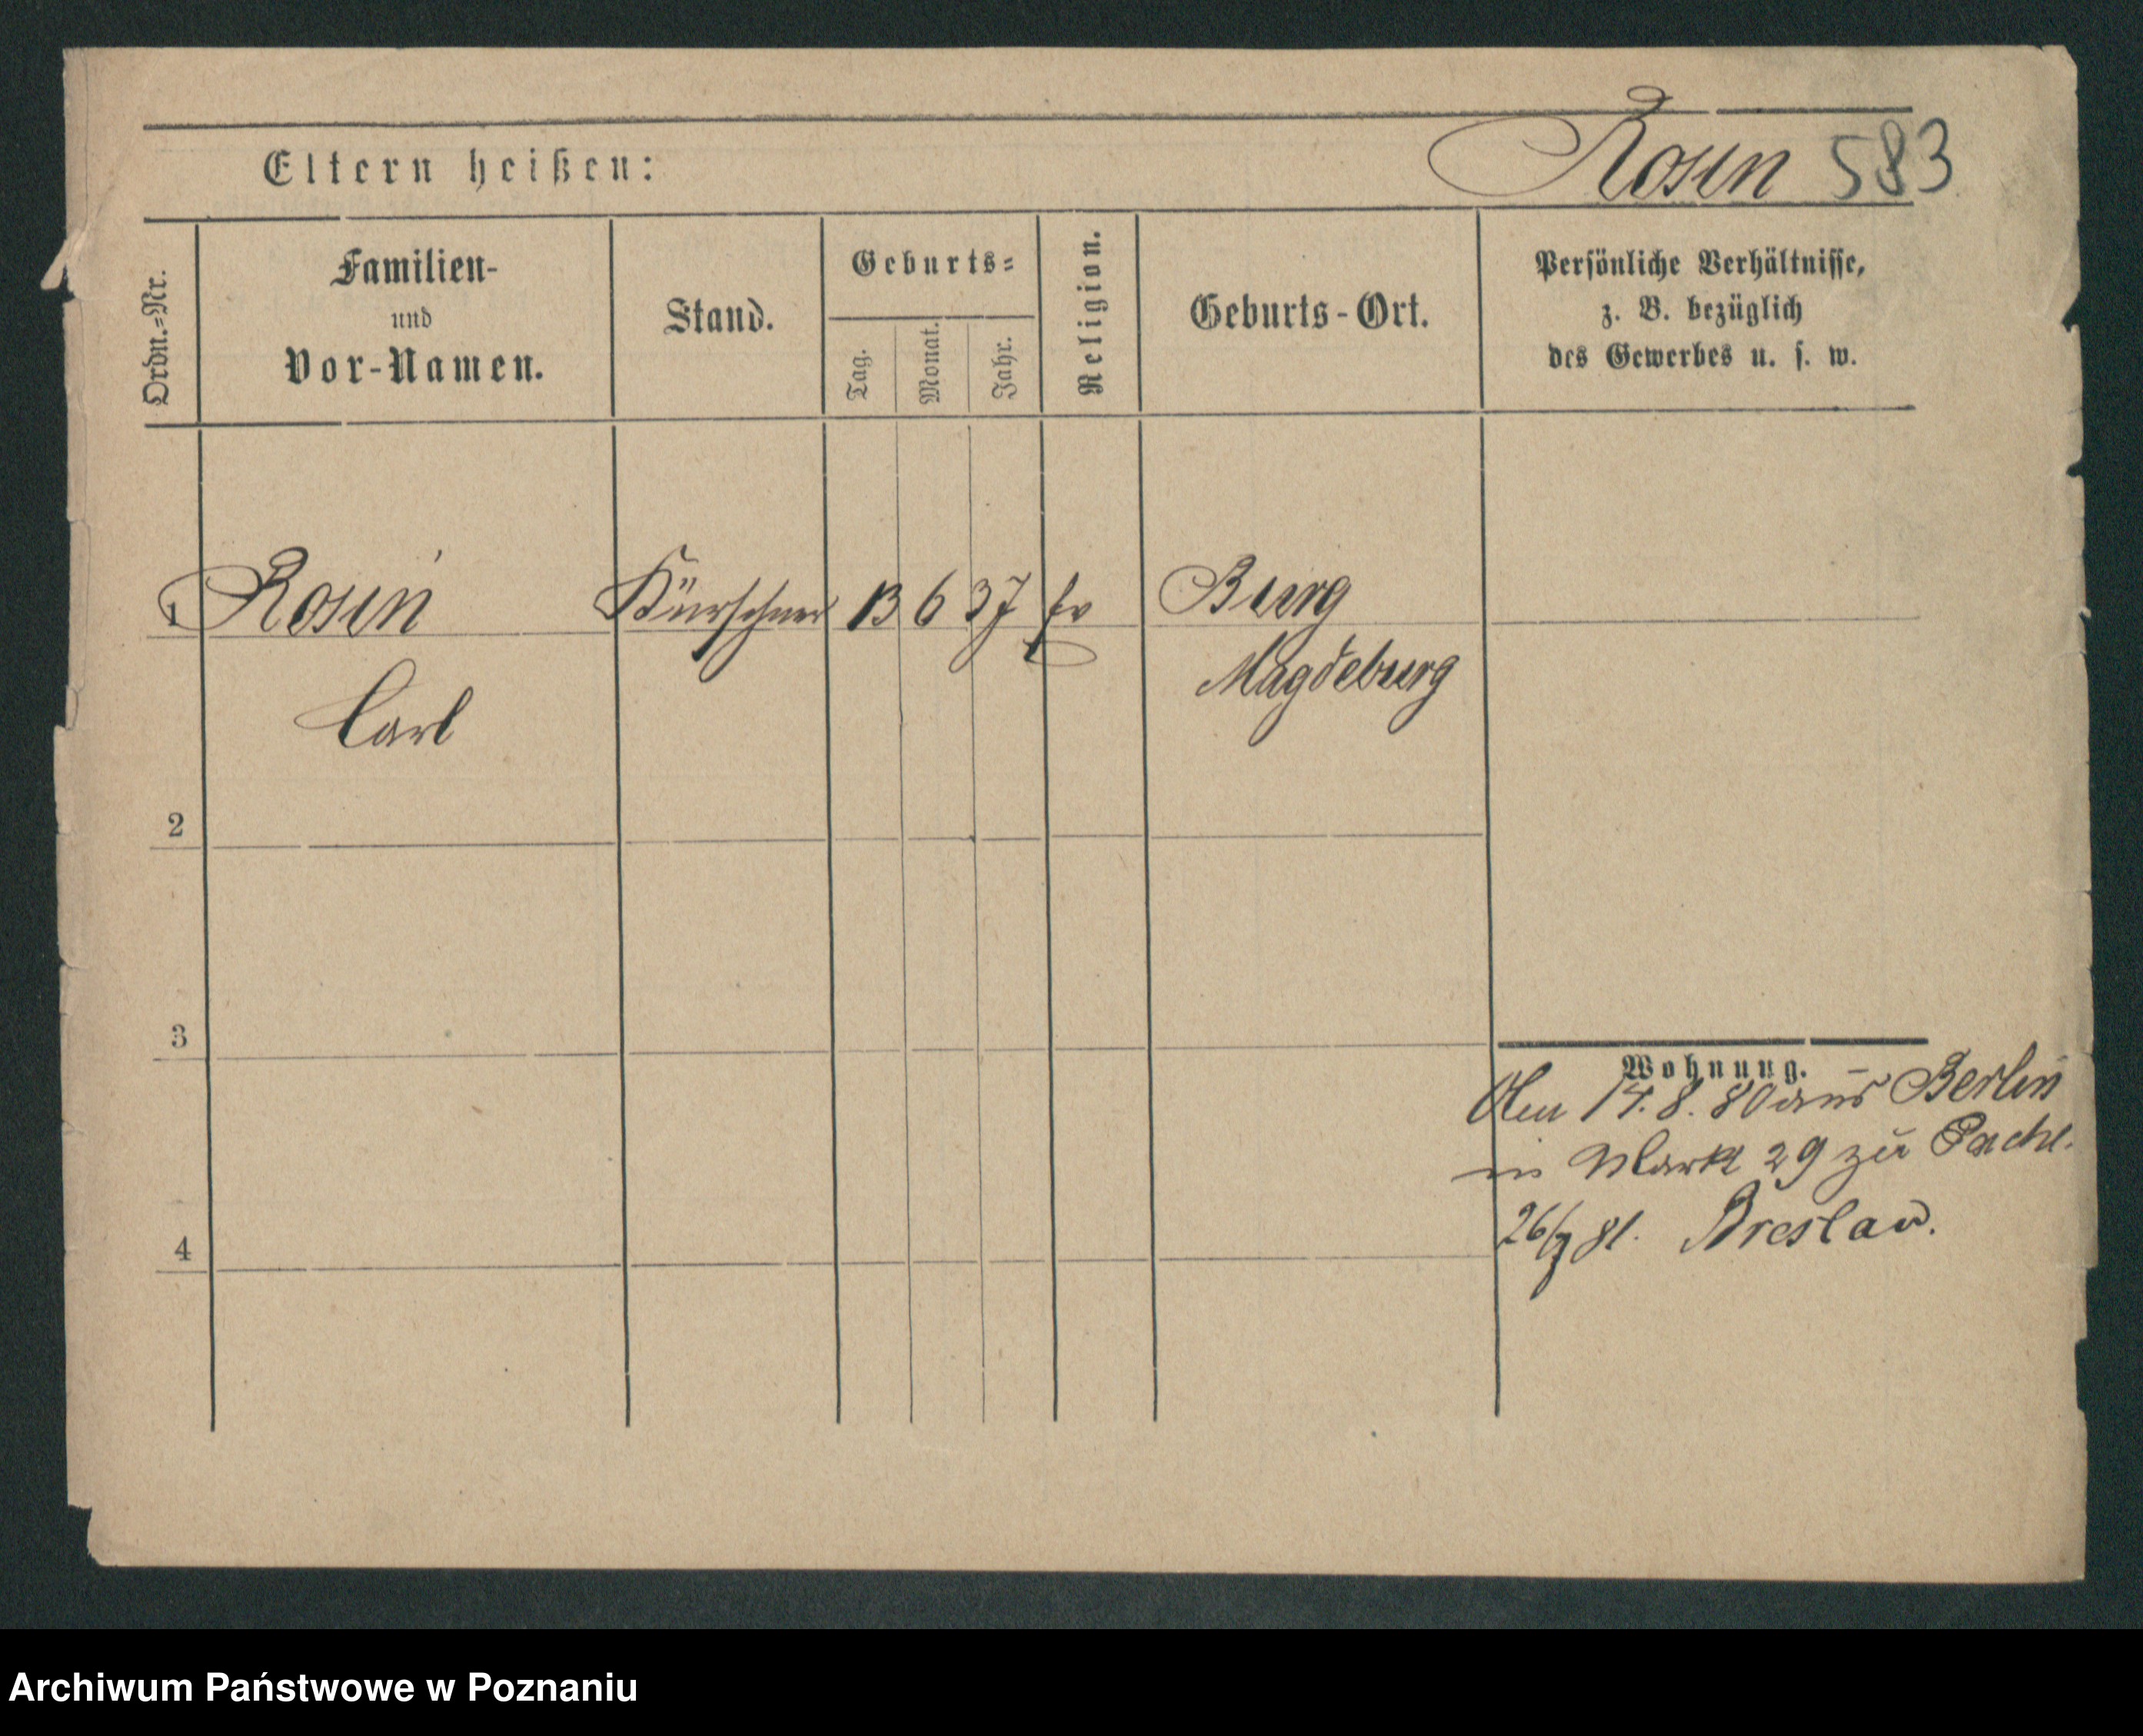 Eltern heißen:
Rosin 583
Ordn.=Nr.
Familien-
und
Vor-Namen.
Stand.
Geburts=
Tag.
Monat.
Jahr.
Religion.
Geburts-Ort.
Persönliche Verhältnisse,
z. B. bezüglich
des Gewerbes u. s. w.
1 Rosin Kürschner 13 6 37 Ev Burg
Magdeburg
Carl
2
3
Wohnung.
14.8.80 aus Berlin
in Markt 29 zu
4
26/7 81. Breslau.
Archiwum Państwowe w Poznaniu